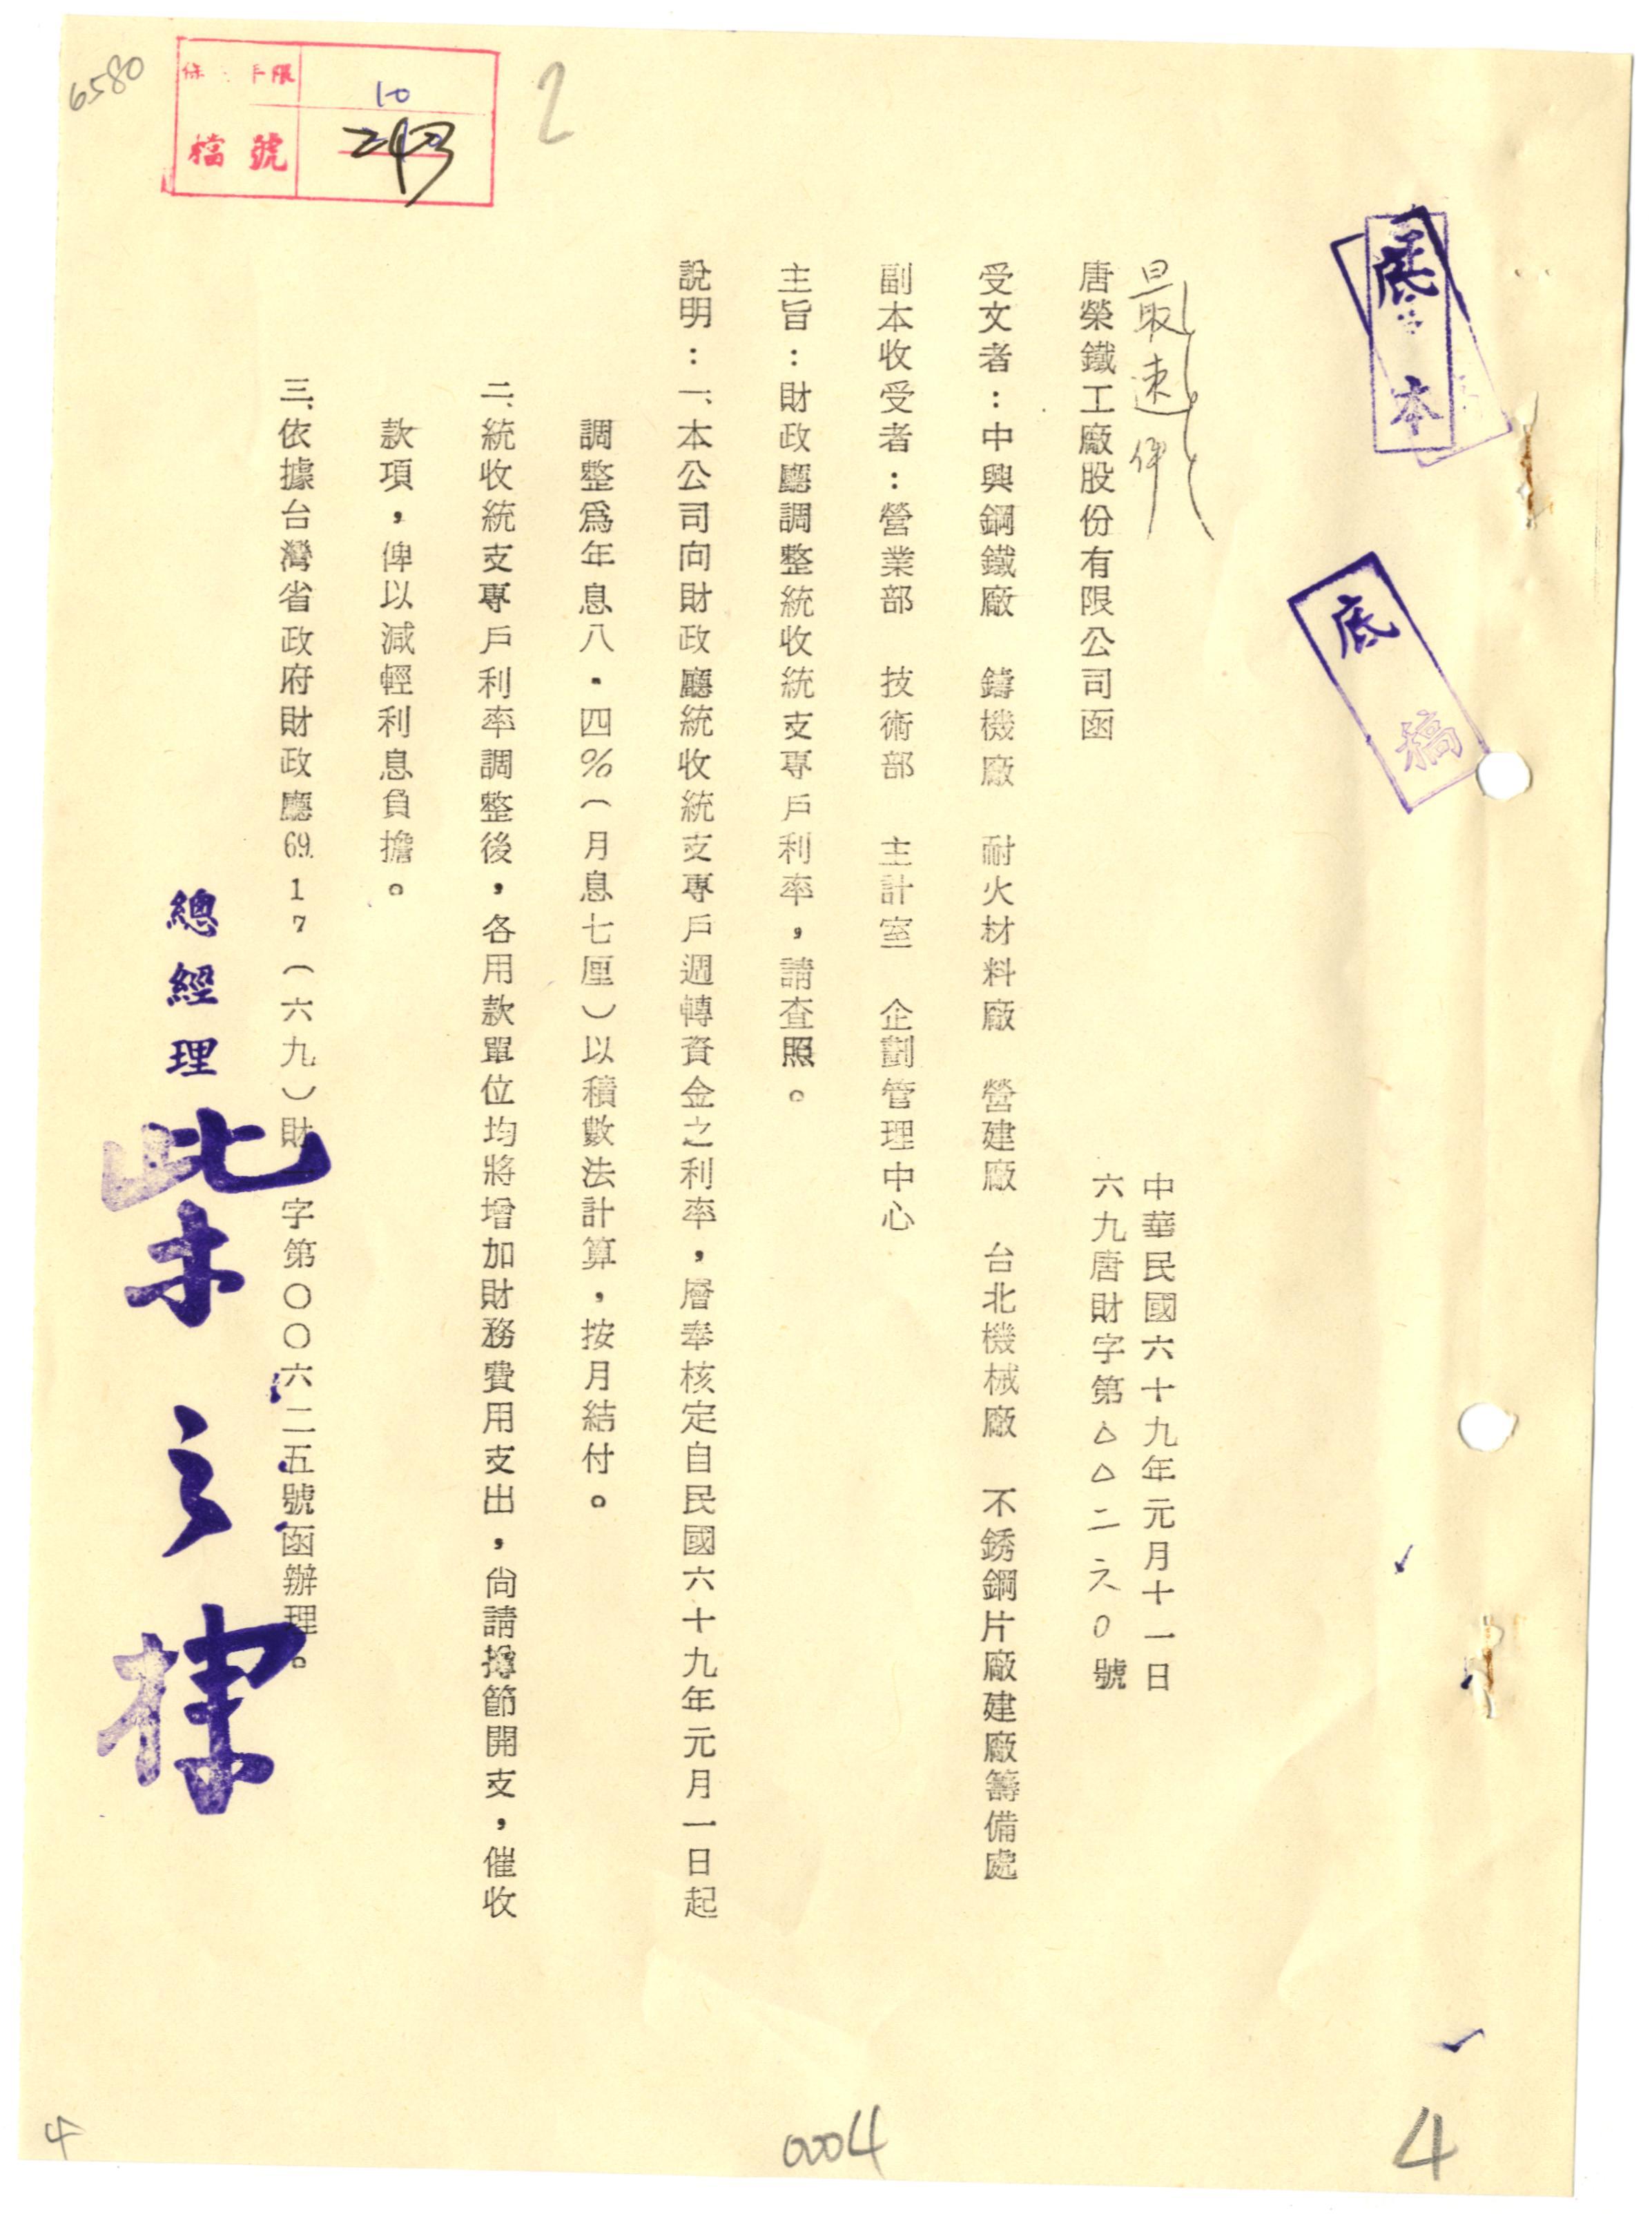 底本
底稿
最速件
中華民國六十九年元月十一日
六九唐財字第△△二六0號
唐榮鐵工廠股份有限公司函
受文者：中興鋼鐵廠 鑄機廠 耐火材料廠 營建廠 台北機械廠 不銹鋼片廠建廠籌備處
副本收受者：營業部 技術部 主計室 企劃管理中心
主旨：財政廳調整統收統支專戶利率，請查照。
說明：一、本公司向財政廳統收統支專戶週轉資金之利率，層奉核定自民國六十九年元月一日起
調整爲年息八・四％（月息七厘）以積數法計算，按月結付。
二、統收統支專戶利率調整後，各用款單位均將增加財務費用支出，尚請撙節開支，催收
款項，俾以減輕利息負擔。
三、依據台灣省政府財政廳69.1 7（六九）財 字第〇〇六二五號函辦理。
總經理 柴之棣
6580
年限
10
檔號
2
4
0004
4